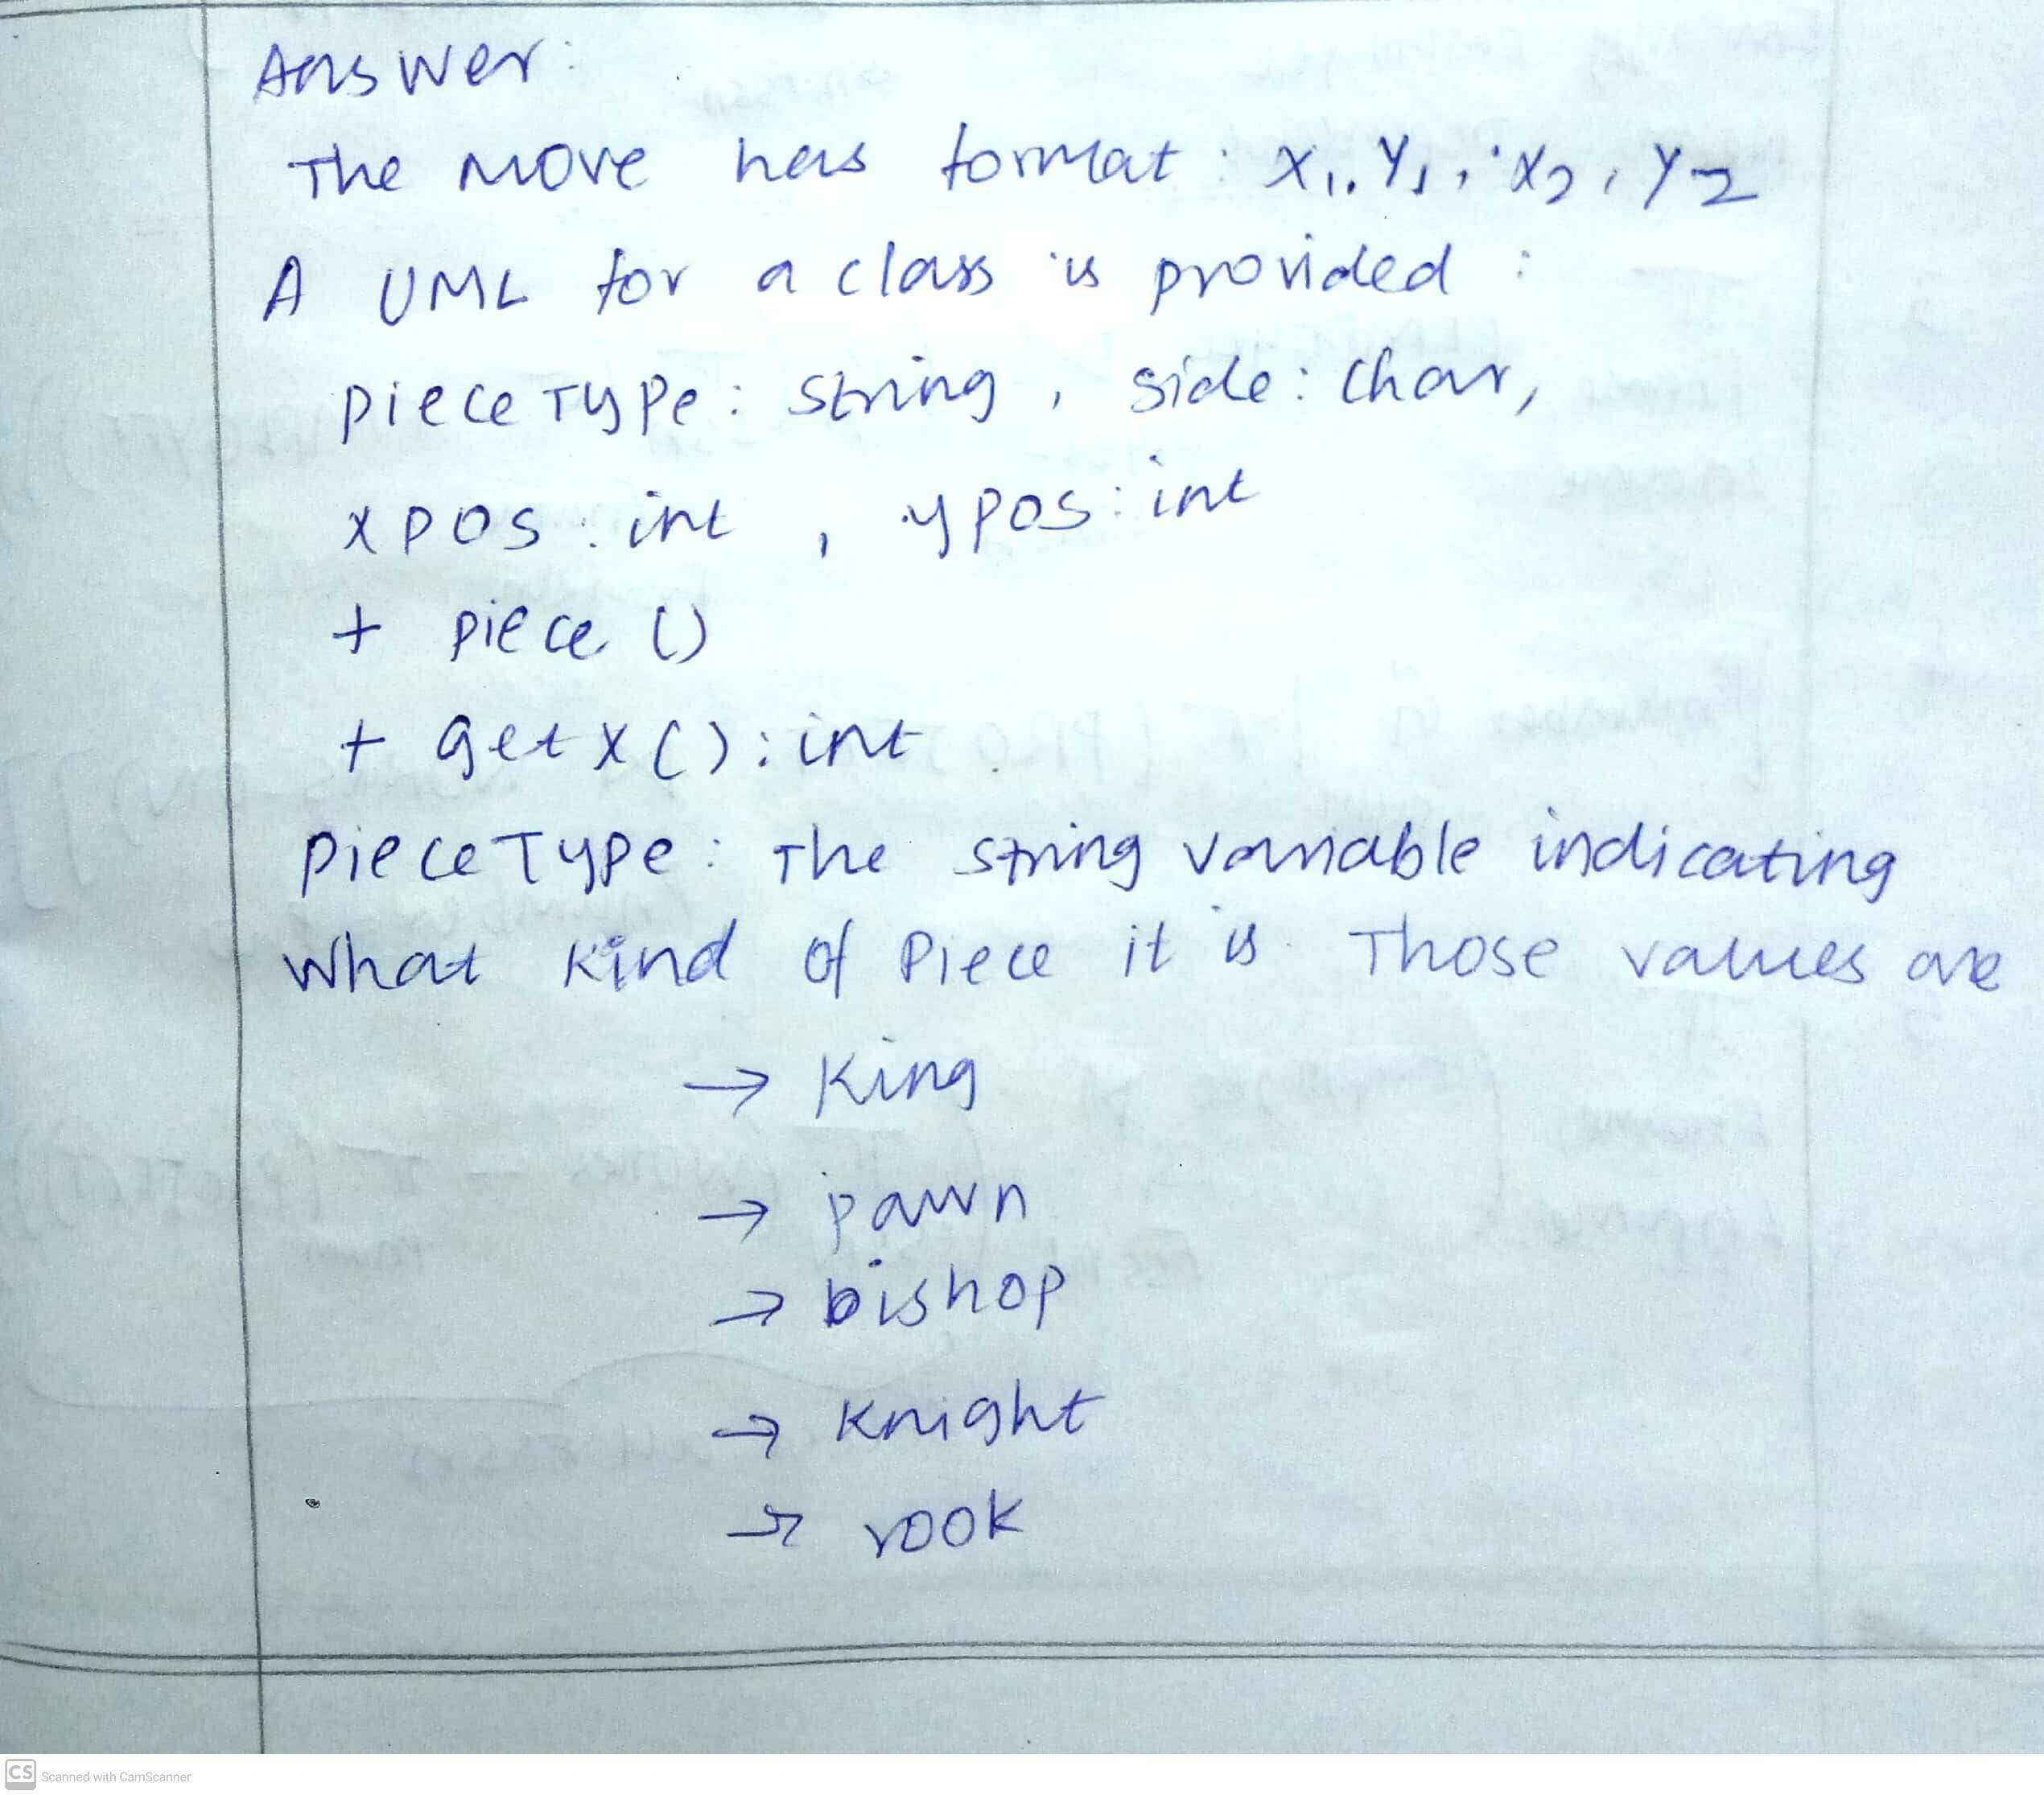 Answer:
The move has format : X1, Y1, X2, Y2
A UML for a class is provided :
pieceType : string , side : char,
xpos : int , ypos : int
+ piece ()
+ getx() : int
pieceType : The string variable indicating
what kind of Piece it is. Those values are
→ King
→ pawn
→ bishop
→ Knight
→ rook
CS Scanned with CamScanner